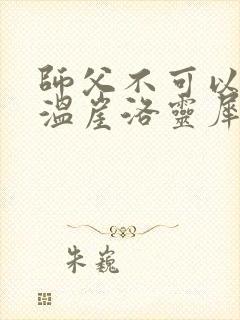 師父不可以
溫崖洛靈犀
朱巍